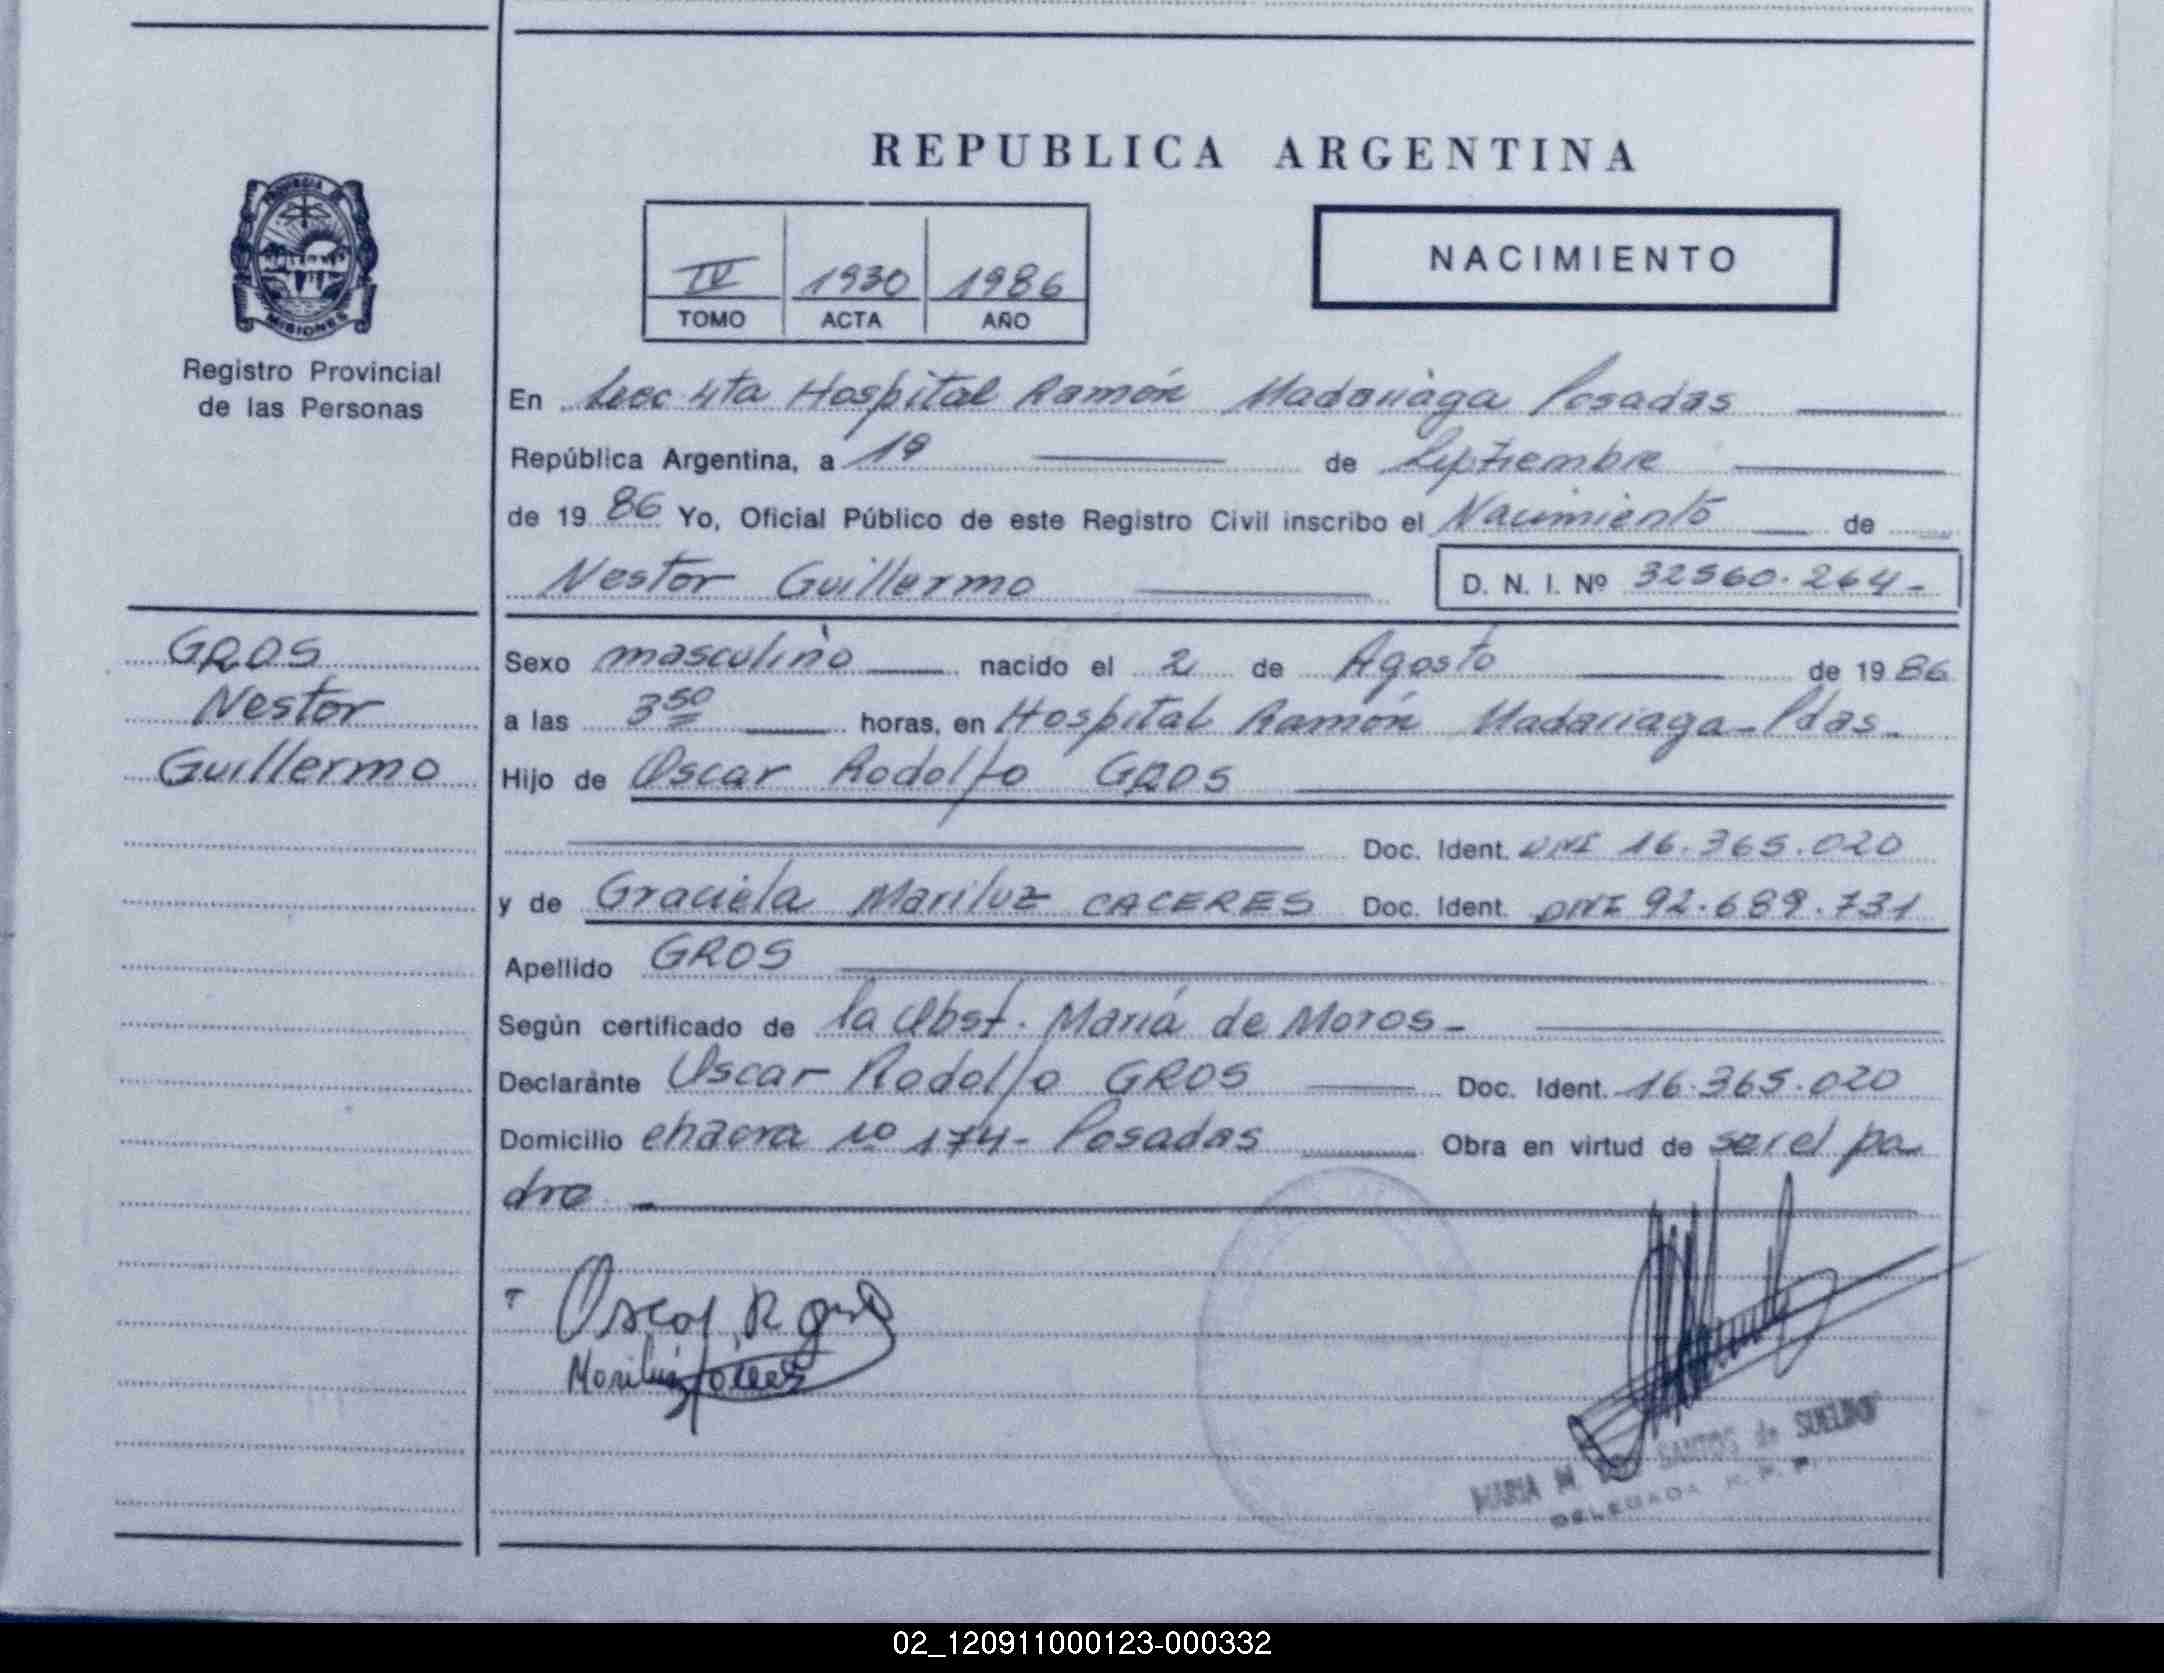 REPUBLICA ARGENTINA
PROVINCIA DE
MISIONES
Registro Provincial
de las Personas
IV 1930 1986
TOMO ACTA AÑO
NACIMIENTO
En Secc 4ta Hospital Ramón Madariaga Posadas
República Argentina, a 19 de Septiembre
de 1986 Yo, Oficial Público de este Registro Civil inscribo el Nacimiento de
Nestor Guillermo D. N. I. Nº 32560.264-
GROS
Nestor
Guillermo
Sexo masculino nacido el 2 de Agosto de 1986
a las 3 50 horas, en Hospital Ramón Madariaga-Pdas.
Hijo de Oscar Rodolfo GROS
Doc. Ident. DNI 16.365.020
y de Graciela Mariluz CACERES Doc. Ident. DNI 92.689.731
Apellido GROS
Según certificado de la Obst. Maria de Moros-
Declarante Oscar Rodolfo GROS Doc. Ident. 16.365.020
Domicilio chacra nº 174- Posadas Obra en virtud de ser el pa
dre
Oscar R Gros
Mariluz
MARIA M. SANTOS de
DELEGADA R. P. P.
02_120911000123-000332